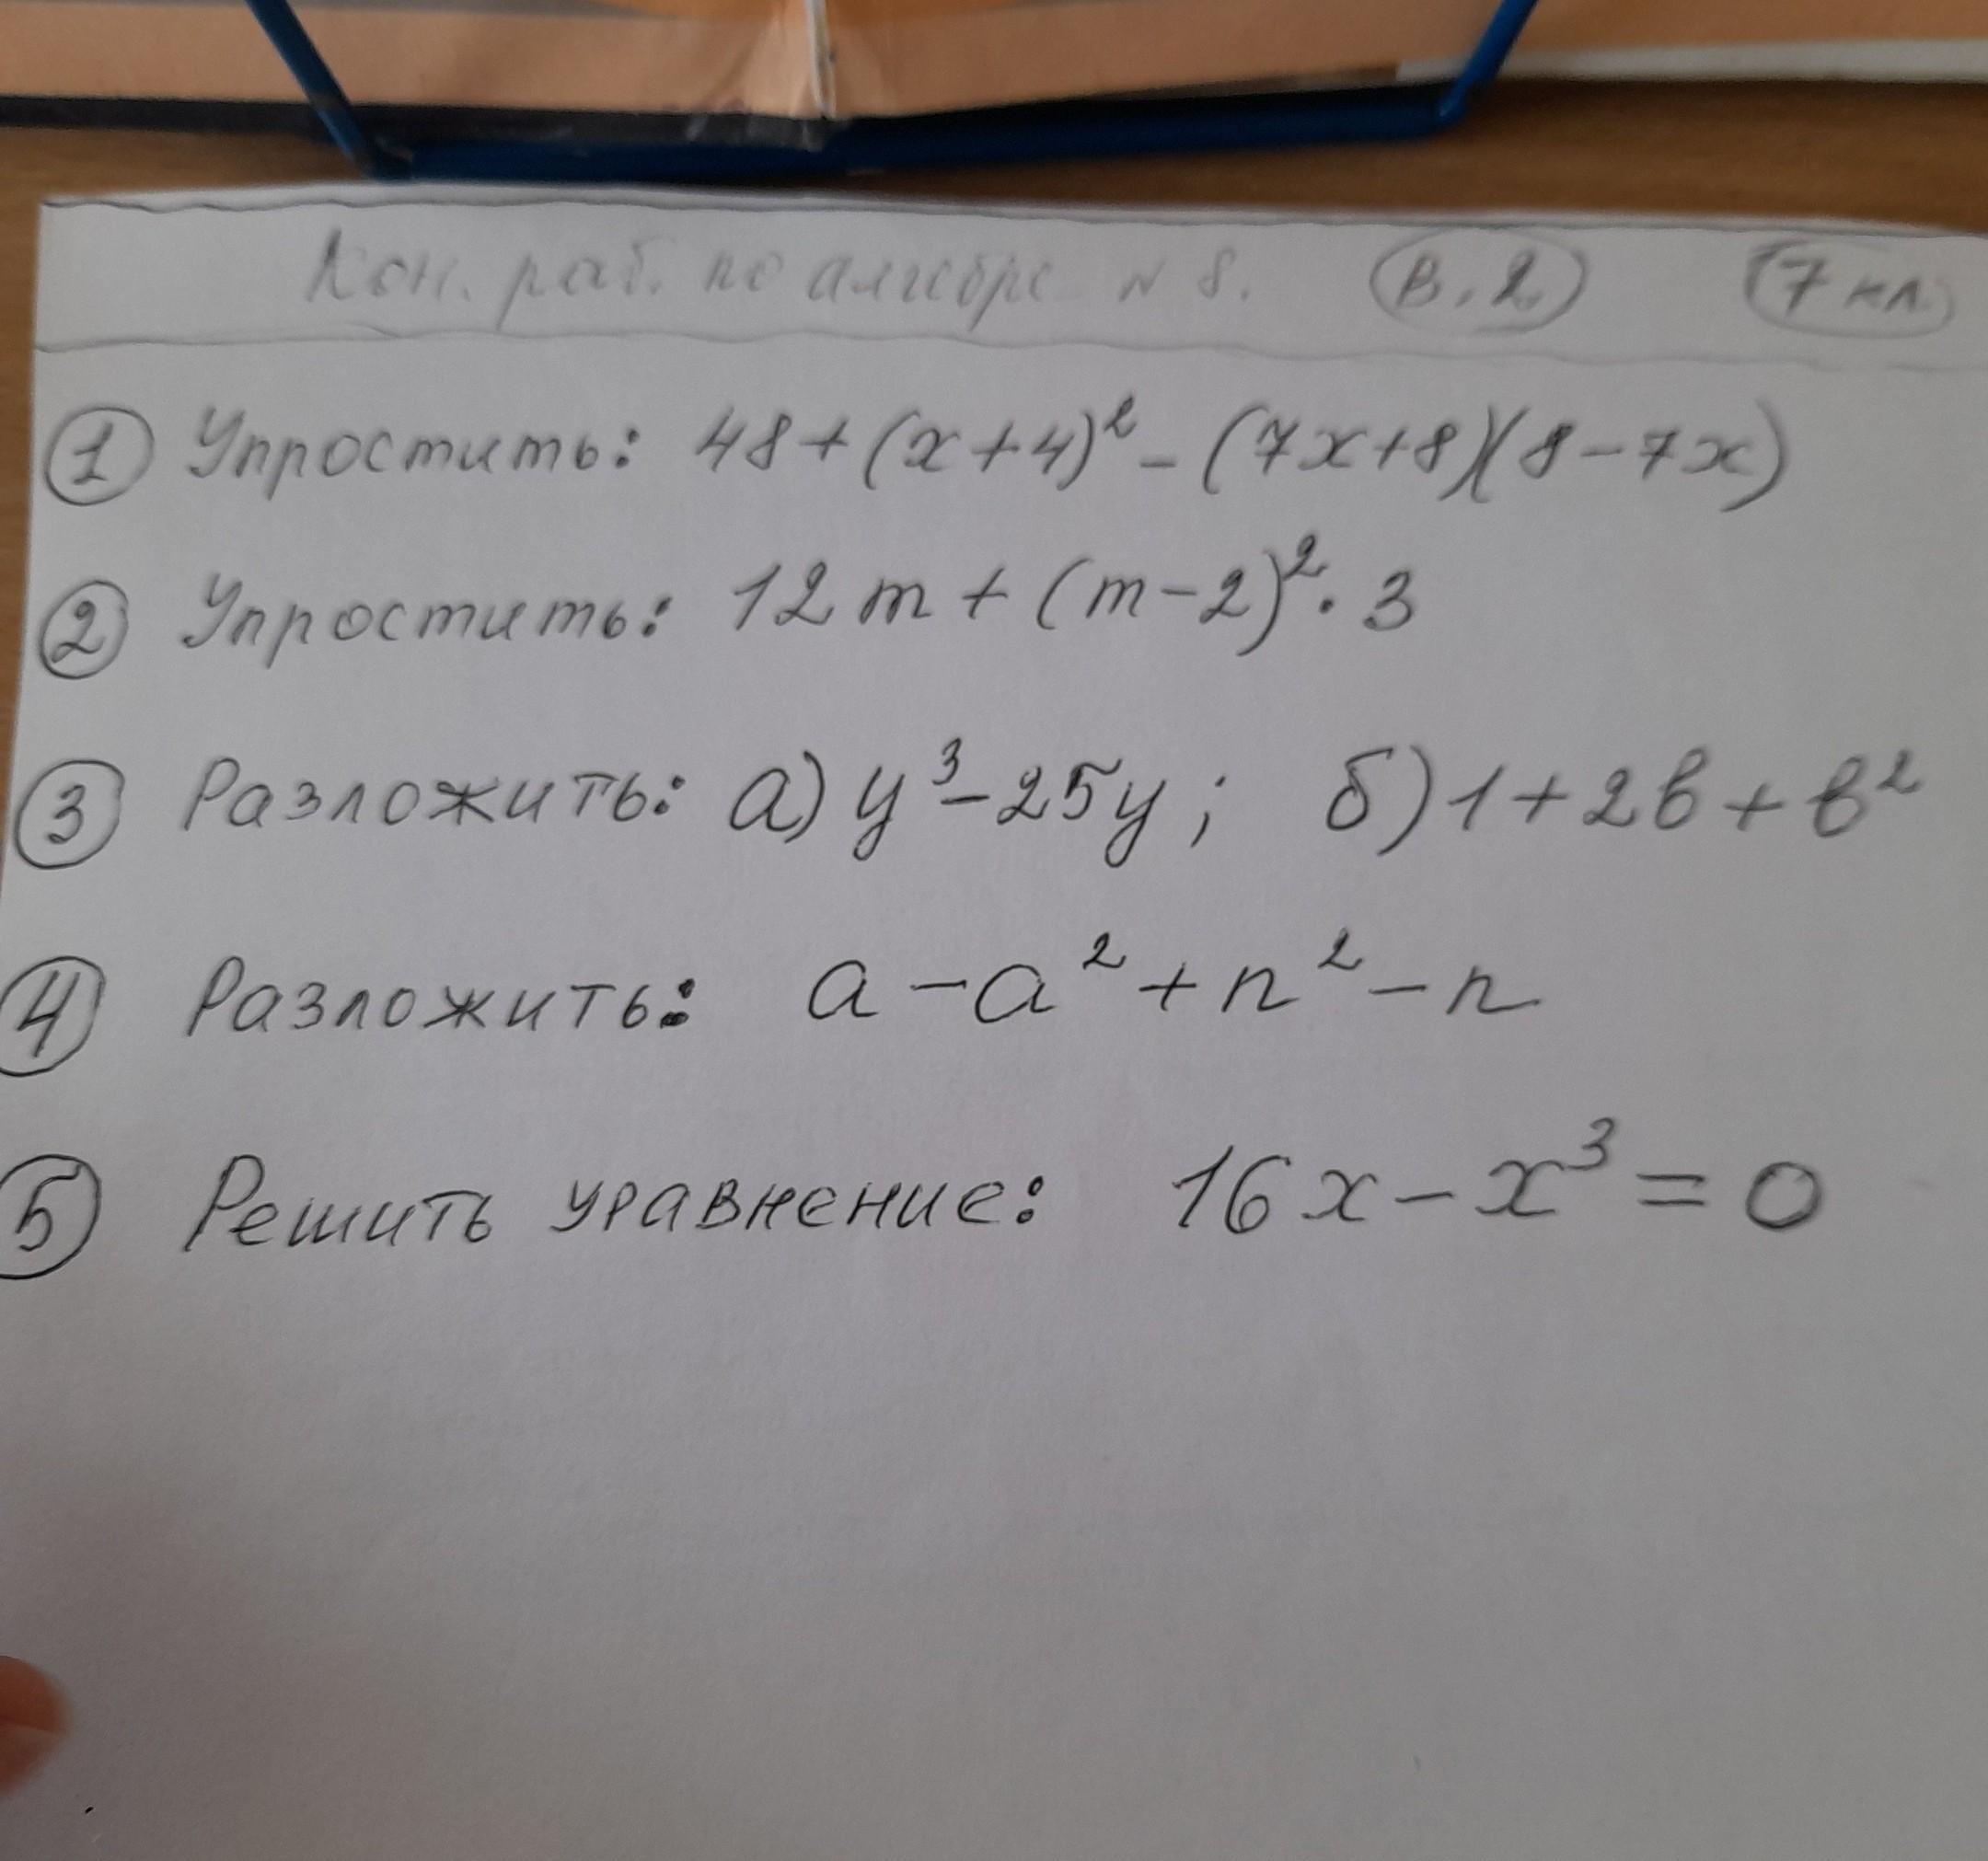 Кон. раб. по алгебре N 8. В. 2 7 кл.
1 Упростить: 48+(x+4)²-(7x+8)(8-7x)
2 Упростить: 12m+(m-2)²·3
3 Разложить: а) y³-25y; б) 1+2b+b²
4 Разложить: a-a²+n²-n
5 Решить уравнение: 16x-x³=0